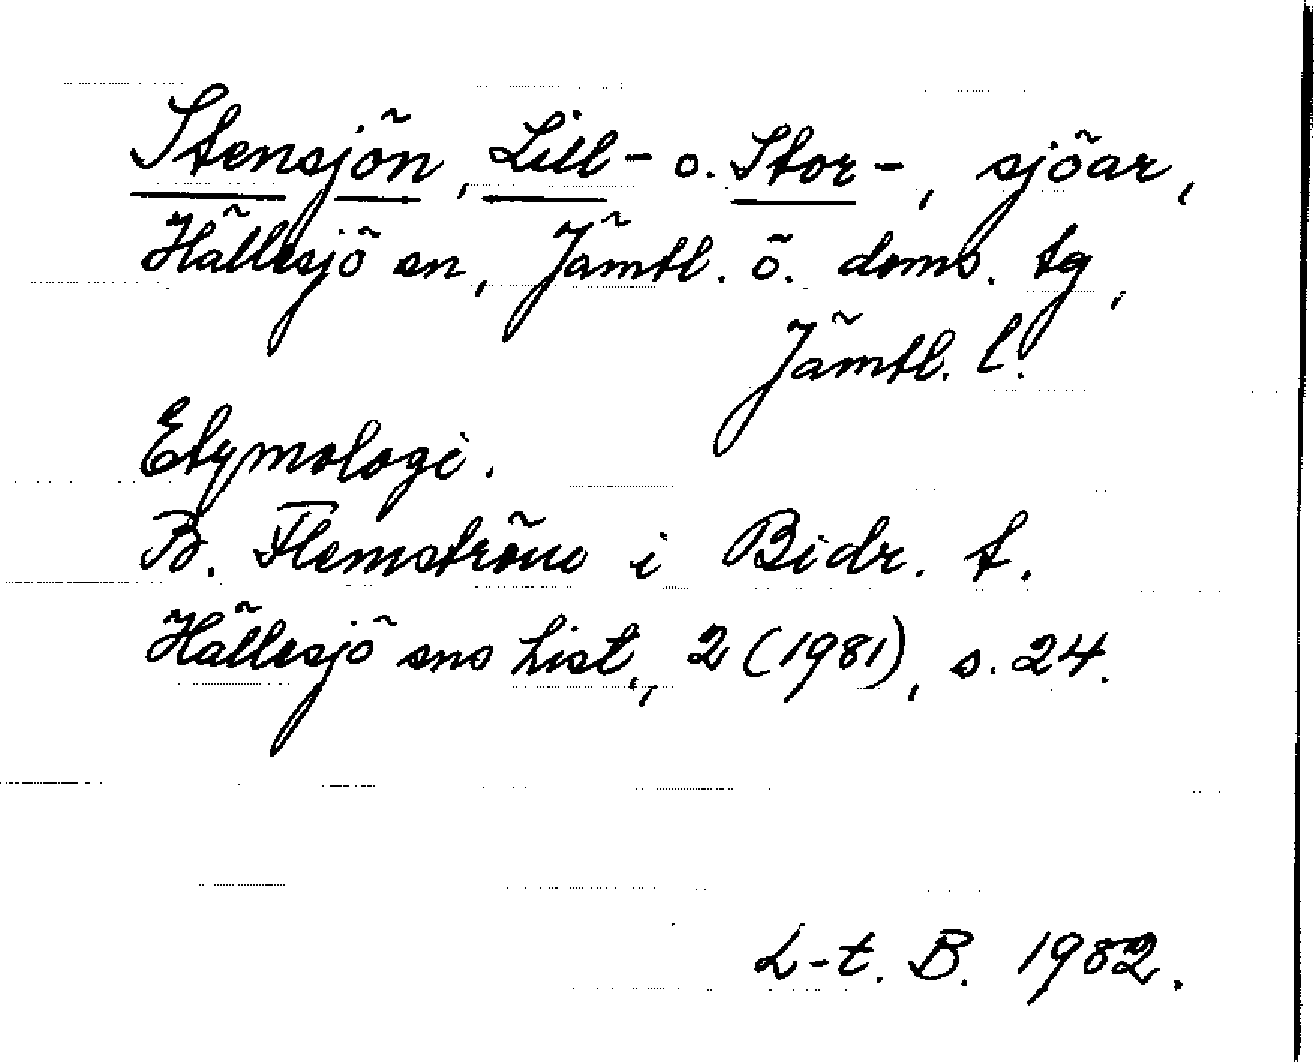 Stensjön, Lill- o. Stor-, sjöar,
Hällesjö sn, Jämtl. ö. doms. tg,
Jämtl. l.
Etymologi.
B. Flemström i Bidr. t.
Hällesjö sns hist., 2 (1981), s. 24.
L-t. B. 1982.